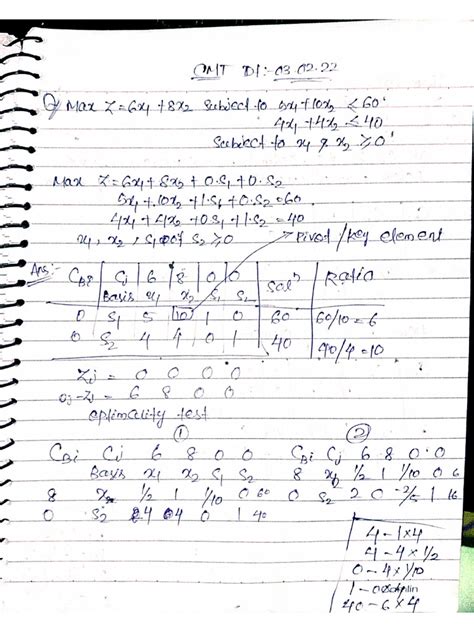 CMT Dt:- 03.02.22
Q) Max Z = 6x1 + 8x2 Subject to 5x1 + 10x2 ≤ 60
4x1 + 4x2 ≤ 40
Subject to x1 & x2 ≥ 0
Max Z = 6x1 + 8x2 + 0.S1 + 0.S2
5x1 + 10x2 + 1.S1 + 0.S2 = 60
4x1 + 4x2 + 0S1 + 1.S2 = 40
x1, x2, S1 S2 ≥ 0
Pivot / key element
Ans:- CBi Cj 6 8 0 0 Sol^n Ratio
Basis x1 x2 S1 S2
0 S1 5 10 1 0 60 60/10 = 6
0 S2 4 4 0 1 40 40/4 = 10
Zj = 0 0 0 0
Cj-Zj = 6 8 0 0
optimality test
① ②
CBi Cj 6 8 0 0 CBi Cj 6 8 0 0
Basis x1 x2 S1 S2 8 x2 1/2 1 1/10 0 6
8 x2 1/2 1 1/10 0 60 0 S2 2 0 -2/5 1 16
0 S2 4 4 0 1 40
4 - 1×4
4 - 4×1/2
0 - 4×1/10
1 - 0×4
40 - 6×4